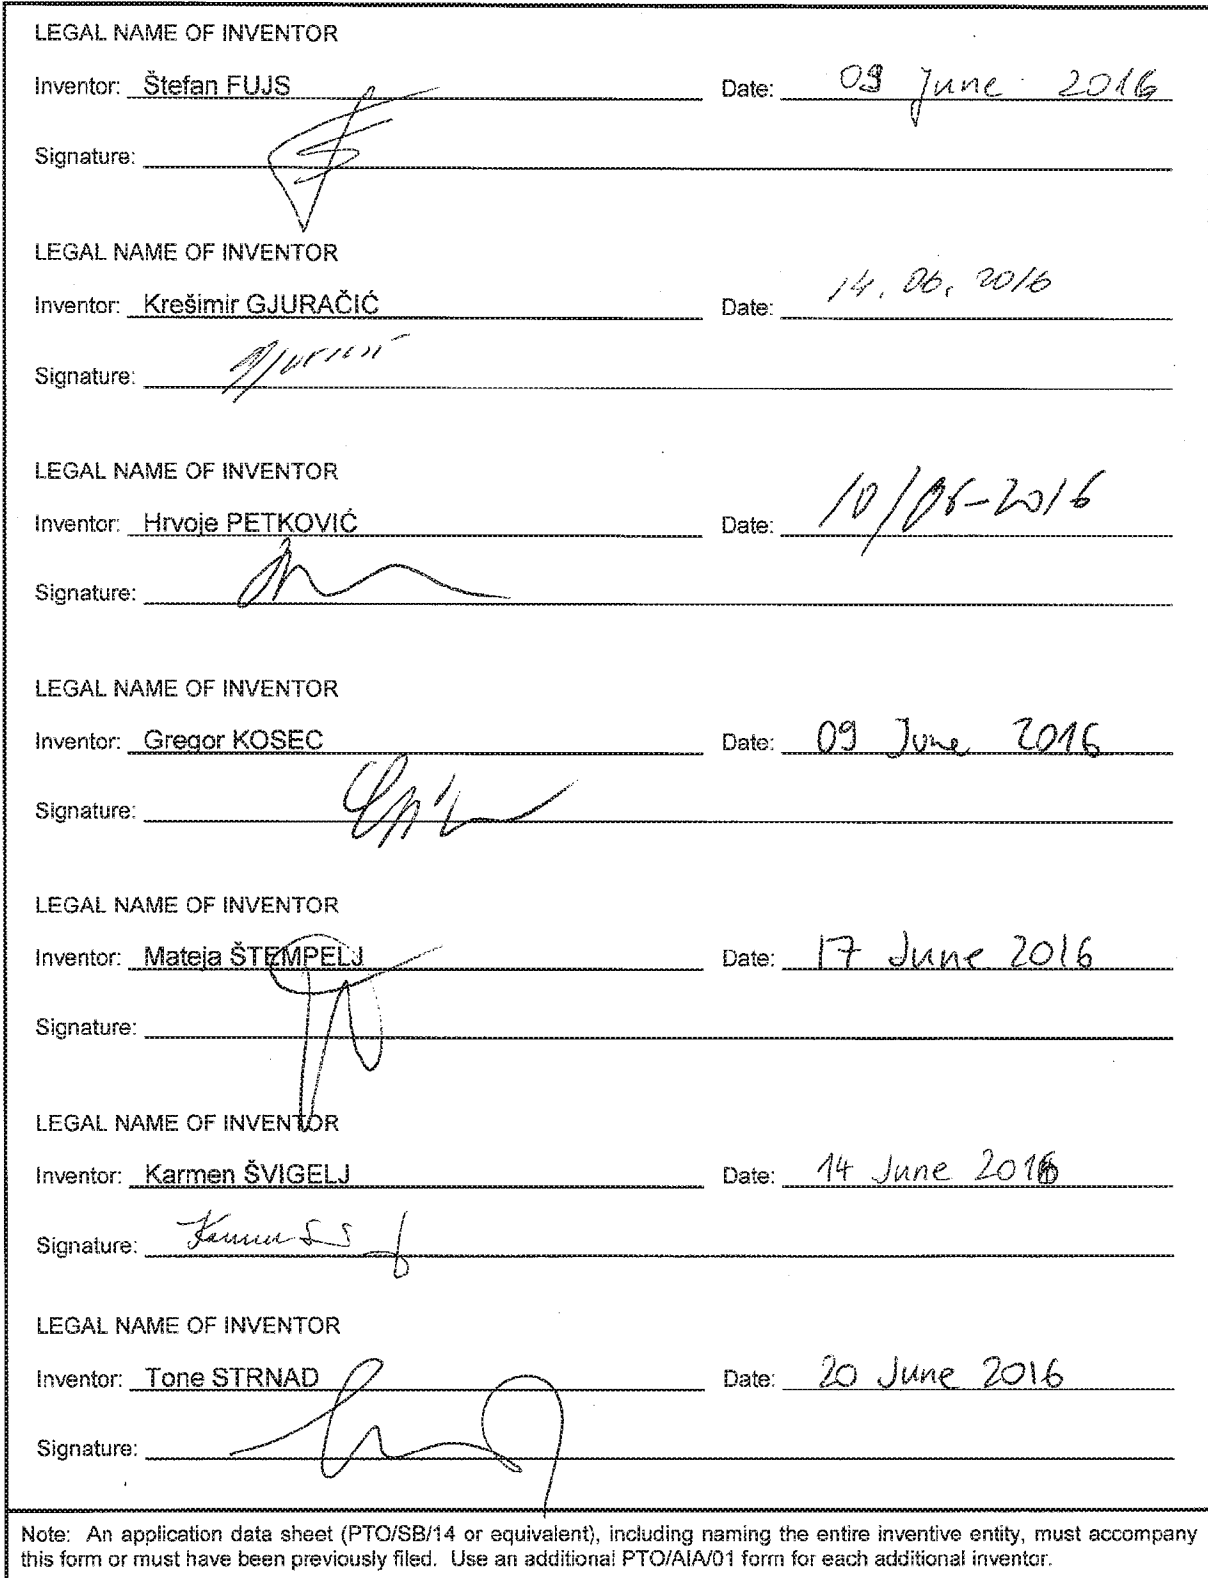 LEGAL NAME OF INVENTOR
Inventor: Štefan FUJS Date: 09 June 2016
Signature:
LEGAL NAME OF INVENTOR
Inventor: Krešimir GJURAČIĆ Date: 14. 06. 2016
Signature:
LEGAL NAME OF INVENTOR
Inventor: Hrvoje PETKOVIĆ Date: 10/06-2016
Signature:
LEGAL NAME OF INVENTOR
Inventor: Gregor KOSEC Date: 09 June 2016
Signature:
LEGAL NAME OF INVENTOR
Inventor: Mateja ŠTEMPELJ Date: 17 June 2016
Signature:
LEGAL NAME OF INVENTOR
Inventor: Karmen ŠVIGELJ Date: 14 June 2016
Signature:
LEGAL NAME OF INVENTOR
Inventor: Tone STRNAD Date: 20 June 2016
Signature:
Note: An application data sheet (PTO/SB/14 or equivalent), including naming the entire inventive entity, must accompany
this form or must have been previously filed. Use an additional PTO/AIA/01 form for each additional inventor.